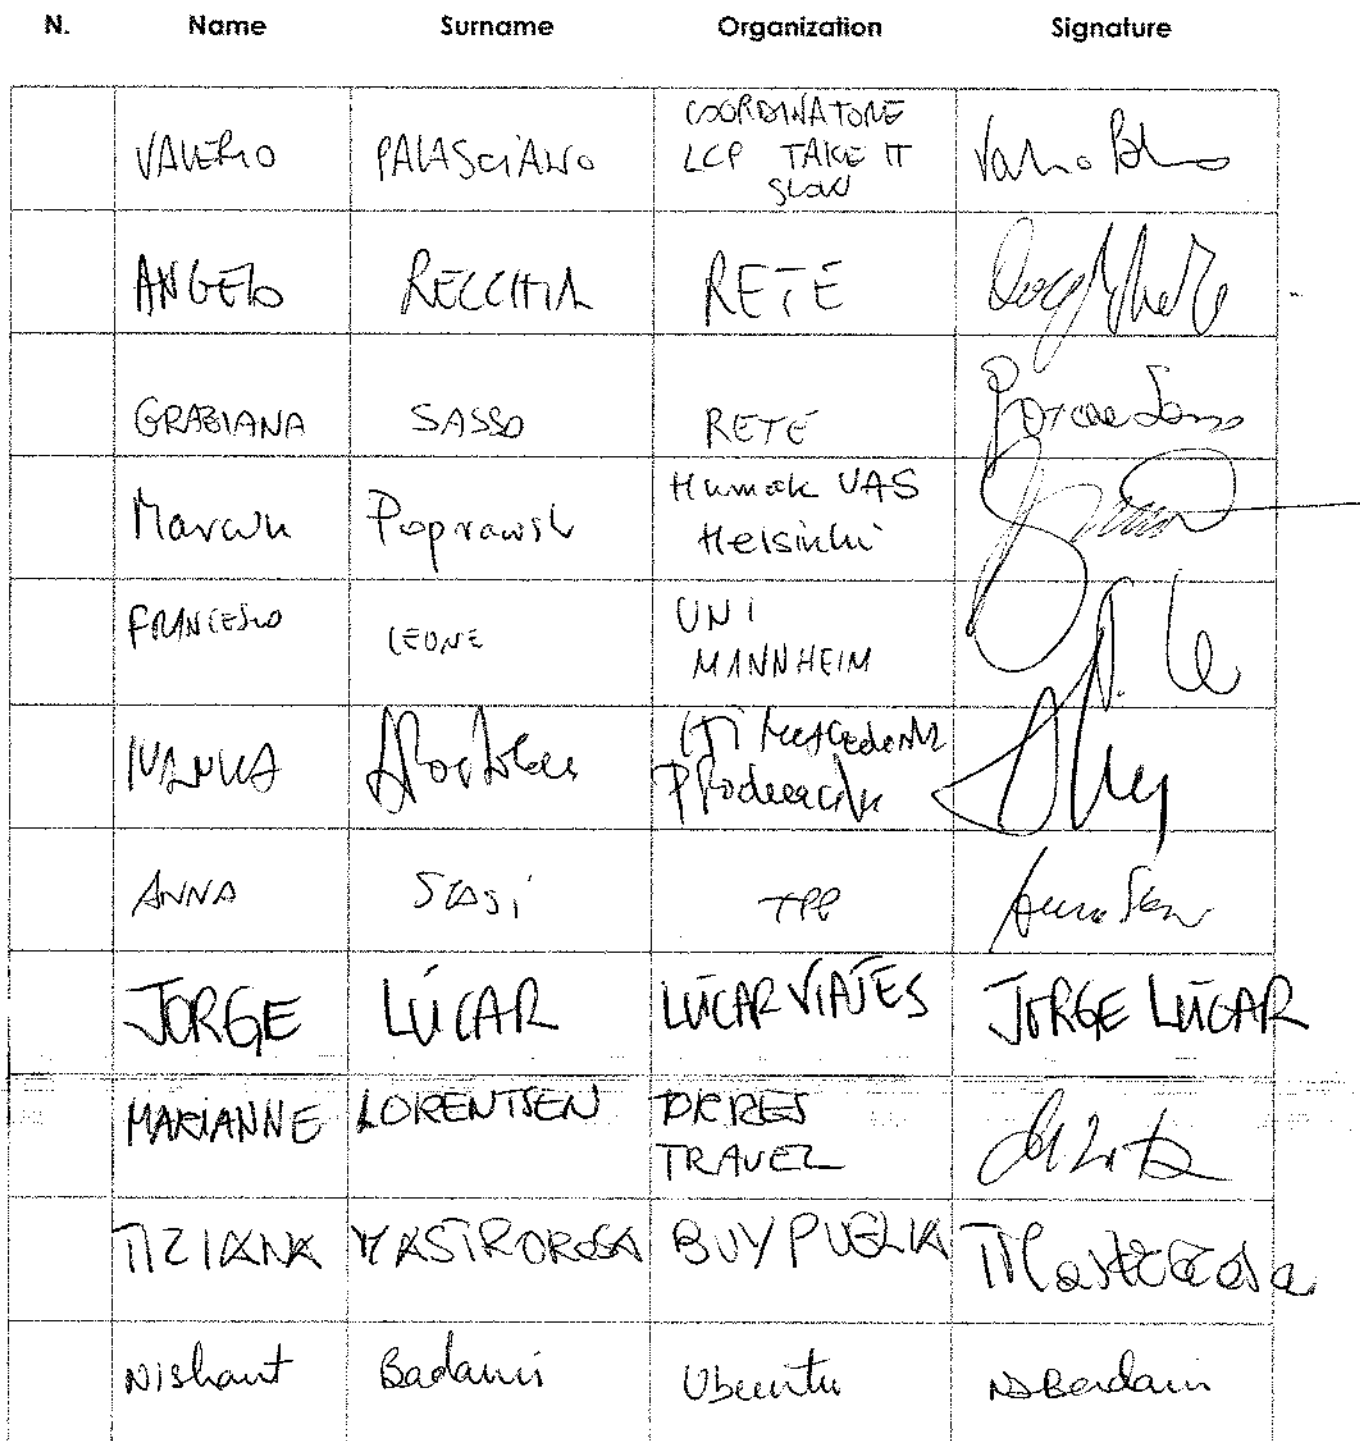 N. Name Surname Organization Signature
VALERIO PALASCIANO COORDINATORE
LCP TAKE IT
SLOW
ANGELO RECCHIA RETE
GRAZIANA SASSO RETE
Marcin Poprawski Humak UAS
Helsinki
FRANCESCO LEONE UNI
MANNHEIM
IVANKA
ANNA STASI TPP
JORGE LÚCAR LÚCAR VIAJES JORGE LÚCAR
MARIANNE LORENTSEN
TRAVEL
TIZIANA MASTROROSA BUY PUGLIA TMastrorosa
Nishant Badani Ubuntu NBadani